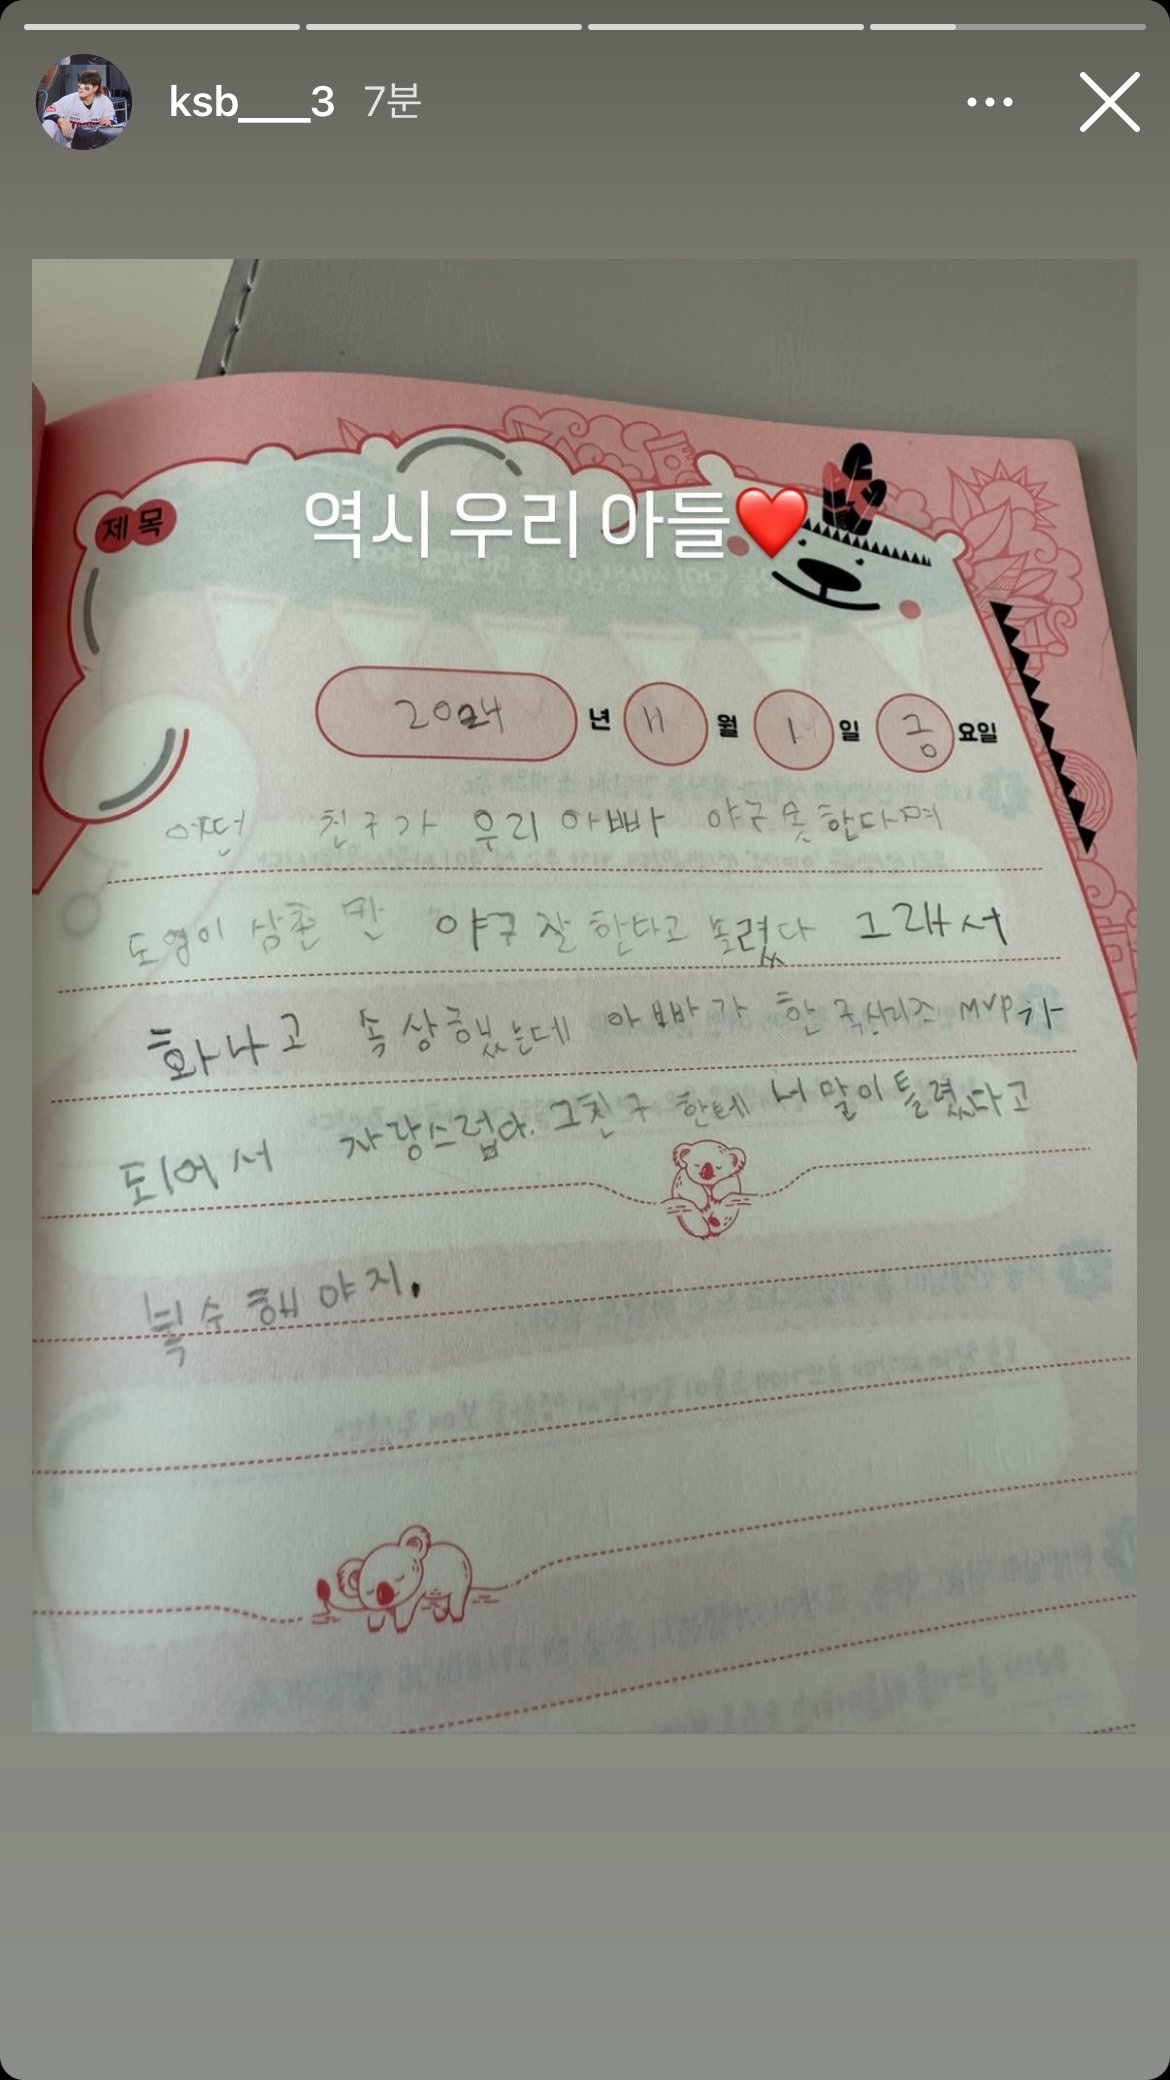 ksb___3 7분
역시 우리 아들❤️
제목
2024 년 11 월 1 일 금 요일
어떤 친구가 우리 아빠가 야구 못 한다며
도영이 삼촌 만 야구 잘 한다고 놀렸다 그래서
화나고 속상했는데 아빠가 한국시리즈 MVP가
되어서 자랑스럽다. 그친구 한테 너 말이 틀렸다고
복수해야지.